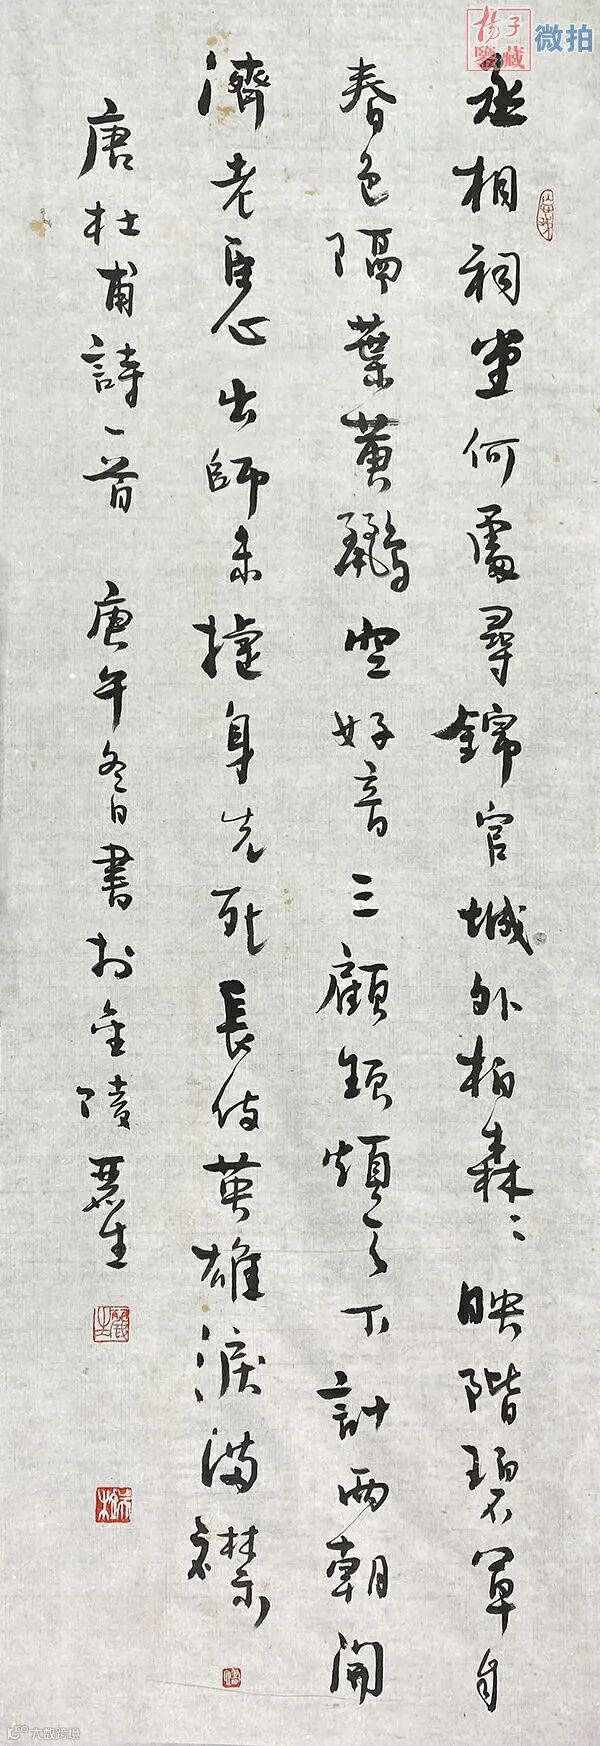 揚子鑒藏 微拍
丞相祠堂何處尋錦官城外柏森〻映階碧草自
春色隔葉黃鸝空好音三顧頻煩天下計兩朝開
濟老臣心出師未捷身先死長使英雄淚滿襟
唐杜甫詩一首 庚午冬日書於金陵
大数跨境